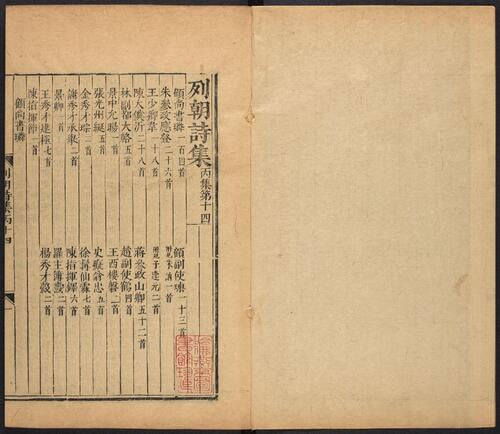 列朝詩集丙集第十四
顧尚書璘一百四首
顧副使璘一十三首
朱叅政應登二十六首
王少卿韋一十八首
附見子逢元二首
陳太僕沂二十八首
蔣叅政山卿五十二首
林副都大輅五首
趙副使鶴四首
景中允暘一首
王西樓磐二首
張光州綖五首
史癡翁忠五首
金秀才琮一首
徐髯仙霖七首
謝秀才承舉二首
陳指揮鐸六首
景卿一首
羅主簿鳳二首
王秀才逢極七首
楊秀才穀二首
陳指揮節一首
顧尚書璘
列朝詩集丙十四
一